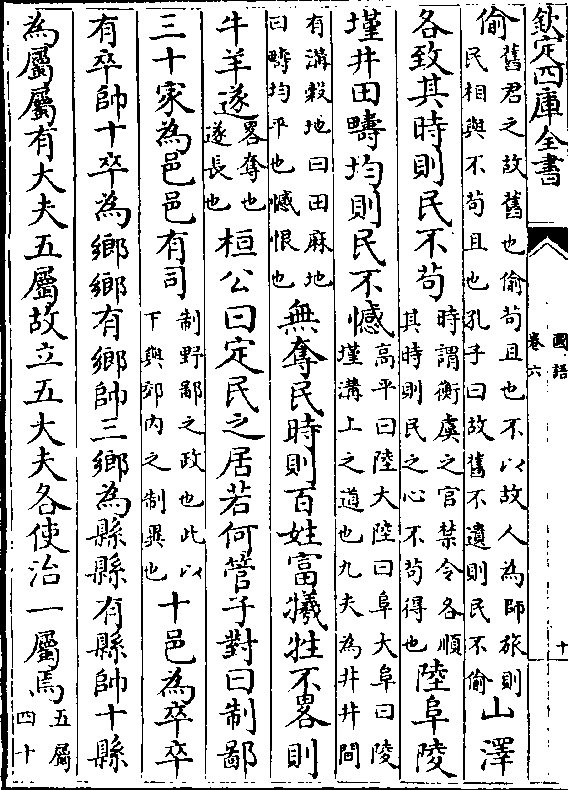 欽定四庫全書
國語
卷六
十
偷
舊君之故舊也偷苟且也不以故人為師旅則
民相與不苟且也孔子曰故舊不遺則民不偷
山澤
各致其時則民不苟
時謂衡虞之官禁令各順
其時則民之心不苟得也
陸阜陵
墐井田疇均則民不憾
高平曰陸大陸曰阜大阜曰陵
墐溝上之道也九夫為井井間
有溝榖地曰田麻地
曰疇均平也憾恨也
無奪民時則百姓富犧牲不畧則
牛羊遂
畧奪也
遂長也
桓公曰定民之居若何管子對曰制鄙
三十家為邑邑有司
制野鄙之政也此以
下與郊内之制異也
十邑為卒卒
有卒帥十卒為鄉鄉有鄉帥三鄉為縣縣有縣帥十縣
為屬屬有大夫五屬故立五大夫各使治一屬焉
五屬
四十